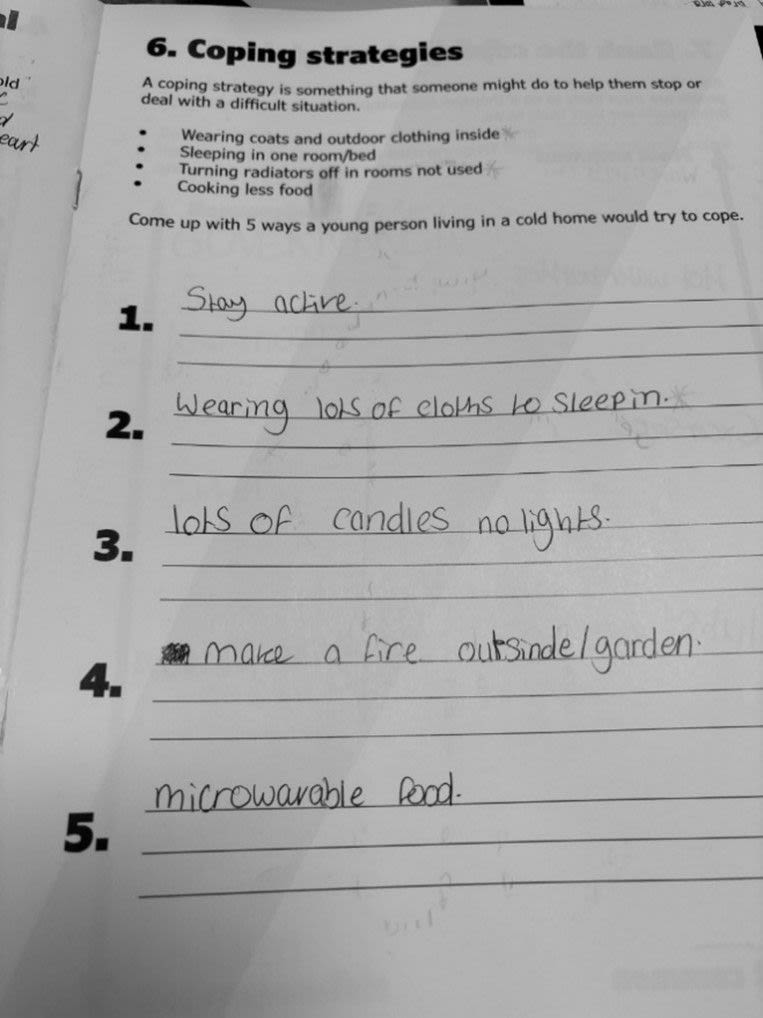 al
old
eart
6. Coping strategies
A coping strategy is something that someone might do to help them stop or
deal with a difficult situation.
• Wearing coats and outdoor clothing inside
• Sleeping in one room/bed
• Turning radiators off in rooms not used
• Cooking less food
Come up with 5 ways a young person living in a cold home would try to cope.
1. Stay active.
2. Wearing lots of cloths to sleepin.
3. lots of candles no lights.
4. make a fire outsinde/garden.
5. microwavable food.